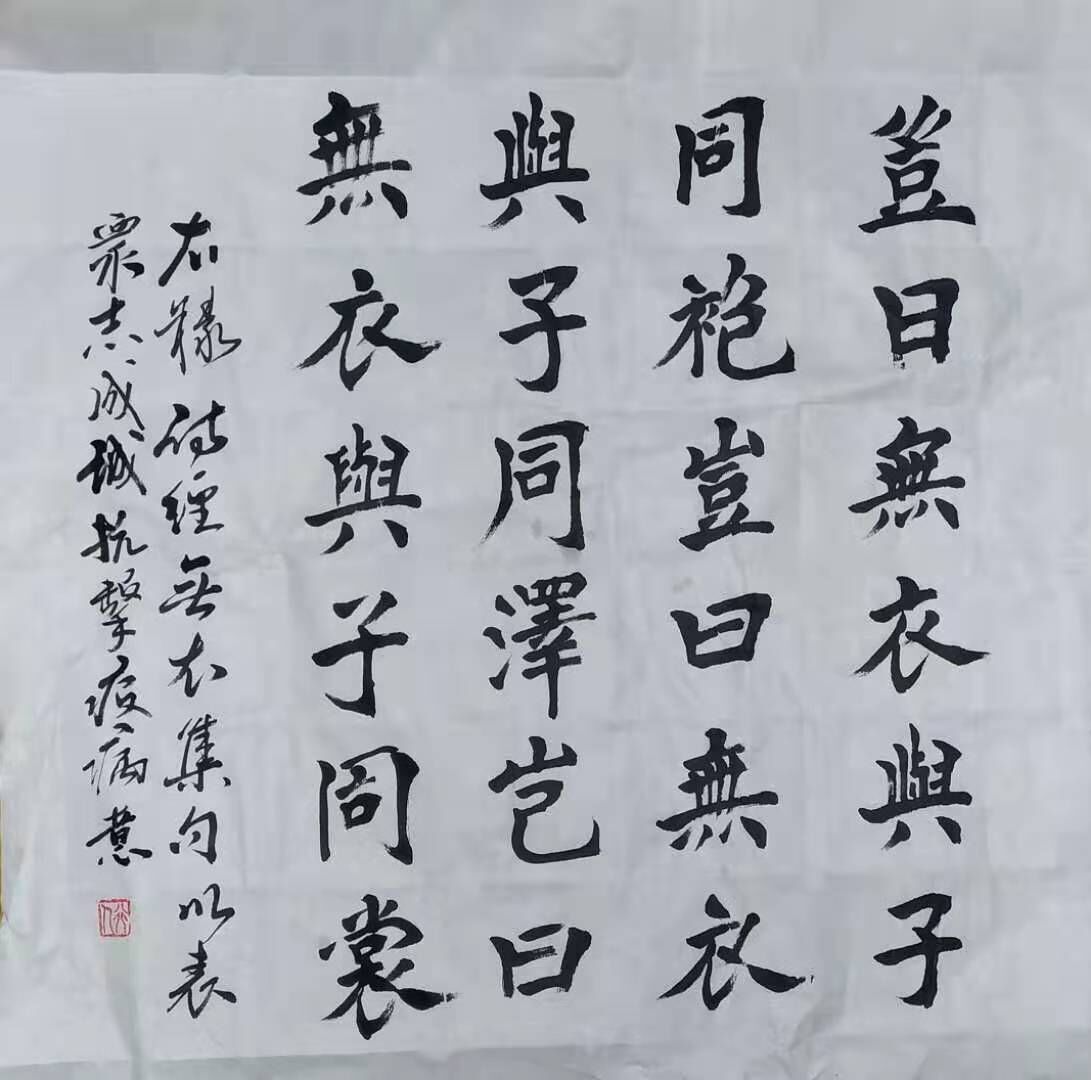 豈曰無衣與子
同袍豈曰無衣
與子同澤岂曰
無衣與子同裳
右录诗經無衣集句以表
眾志成城抗擊疫病意